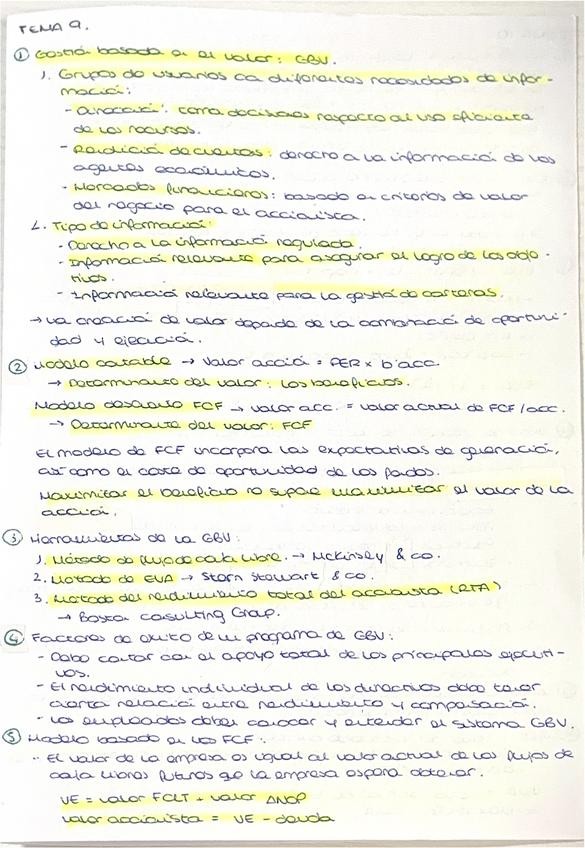 TEMA 9.
① Gestión basada en el valor: GBV.
1. Grupos de usuarios con diferentes necesidades de infor-
mación:
- Dirección: toma decisiones respecto al uso eficiente
de los recursos.
- Rendición de cuentas: derecho a la información de los
agentes económicos.
- Mercados financieros: basado en criterios de valor
del negocio para el accionista.
2. Tipo de información:
- Derecho a la información regulada.
- Información relevante para asegurar el logro de los obje-
tivos.
- Información relevante para la gestión de carteras.
→ La creación de valor depende de la combinación de oportuni-
dad y ejecución.
② Modelo contable → Valor acción = PER x b'acc.
→ Determinante del valor: los beneficios.
Modelo descuento FCF → valor acc. = valor actual de FCF/acc.
→ Determinante del valor: FCF
El modelo de FCF incorpora las expectativas de generación,
así como el coste de oportunidad de los fondos.
Maximizar el beneficio no supone maximizar el valor de la
acción.
③ Herramientas de la GBV:
1. Método de flujo de caja libre. → McKinsey & co.
2. Método de EVA → Stern Stewart & co.
3. Método del rendimiento total del accionista (RTA)
→ Boston Consulting Group.
④ Factores de éxito de un programa de GBV:
- Debe contar con el apoyo total de los principales ejecuti-
vos.
- El rendimiento individual de los directivos debe tener
cierta relación entre rendimiento y compensación.
- Los empleados deben conocer y entender el sistema GBV.
⑤ Modelo basado en los FCF:
- El valor de la empresa es igual al valor actual de los flujos de
caja libres futuros que la empresa espera obtener.
VE = valor FCLT + valor ANOP
valor accionista = VE - deuda